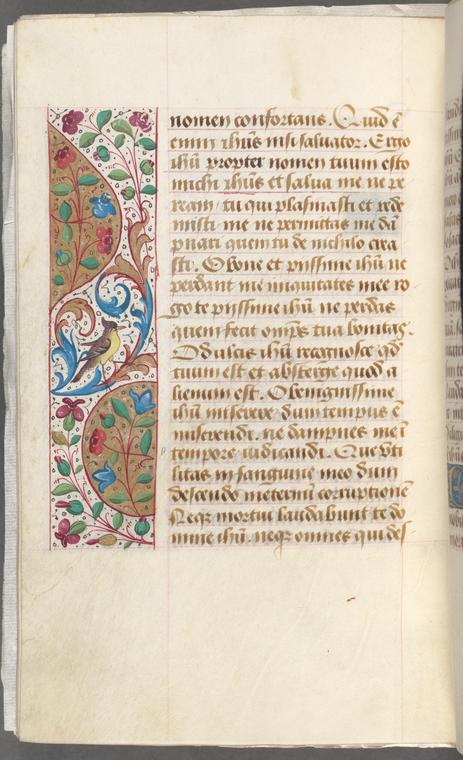 nomen confortans. Quid ē
enim ihūs nisi saluator. Ergo
ihū propter nomen tuum esto
michi ihūs et salua me ne pe
ream. tu qui plasmasti et rede
misti me ne permittas me dā
pnari quem tu de nichilo crea
sti. O bone et piissime ihū ne
perdant me iniquitates mee ro
go te piissime ihū ne perdas
quem fecit omps tua bonitas.
O dulcis ihū recognosce qd
tuum est et absterge quod a
lienum est. O benignissime
ihū miserere dum tempus ē
miserendi. ne dampnes me ī
tempore iudicandi. Que vti
litas in sanguine meo dum
descendo ineternū corruptionē
Neqz mortui laudabunt te do
mine ihū. neqz omnes qui des